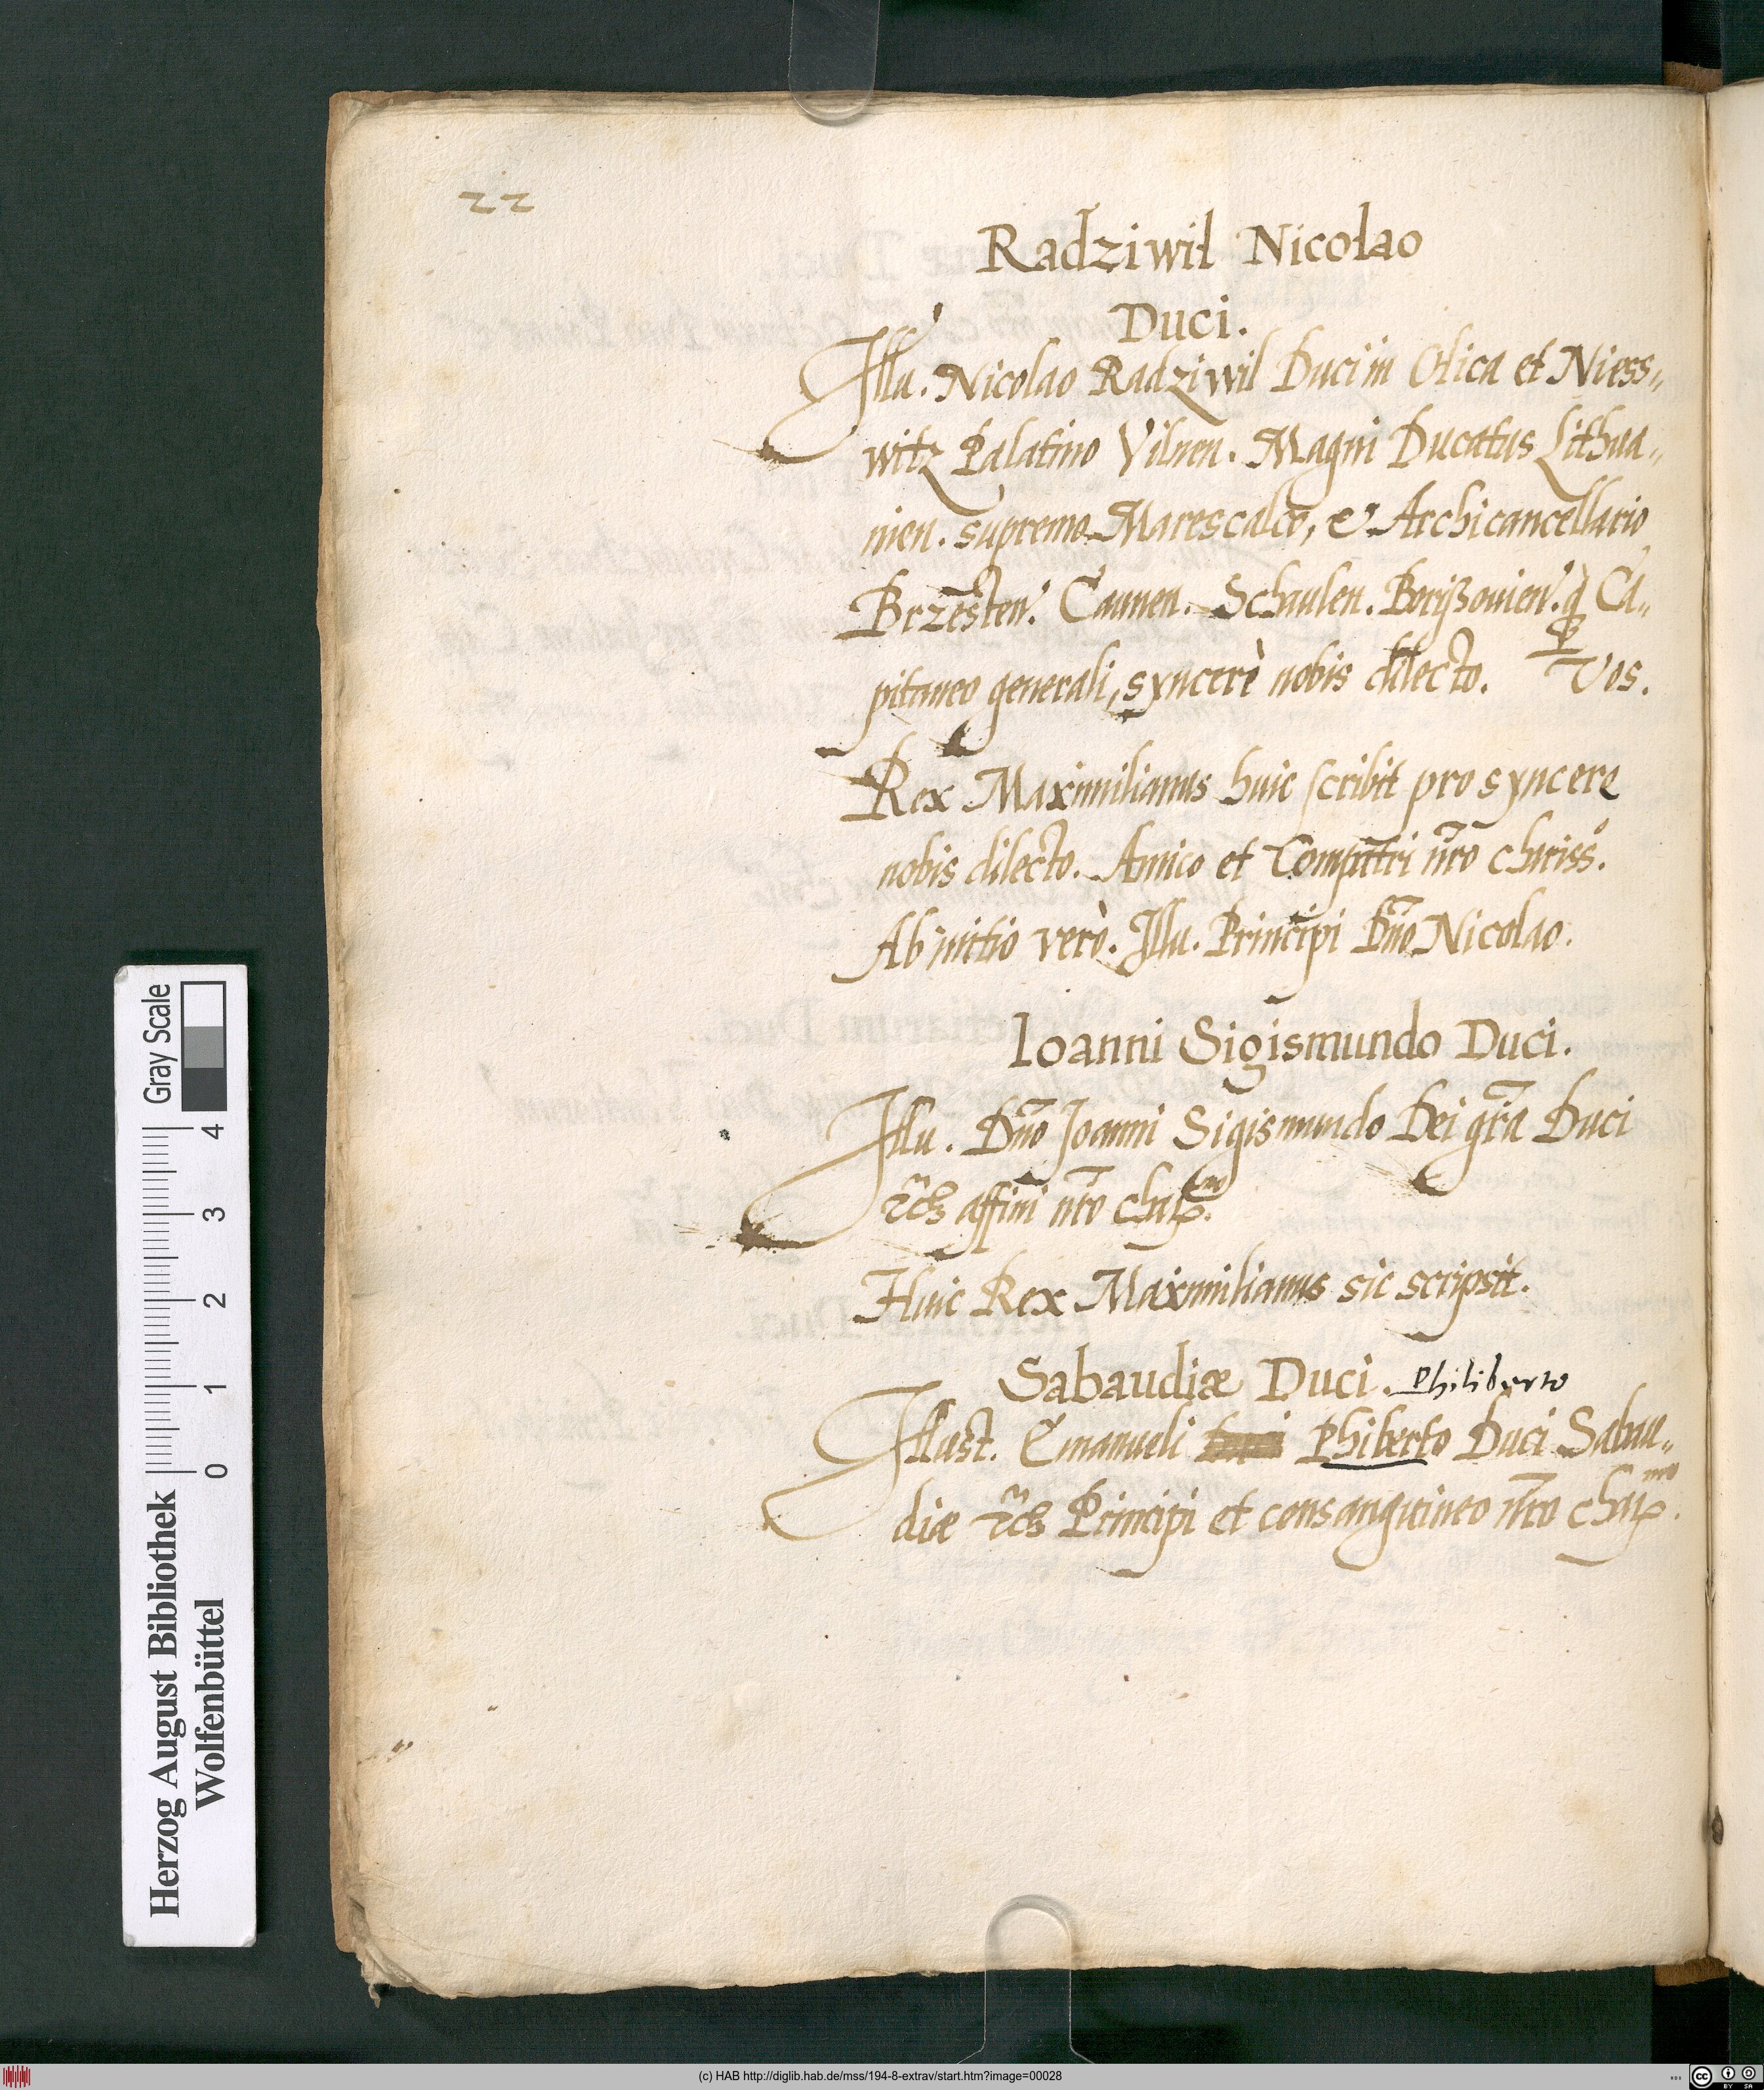 22
Radziwil Nicolao
Duci.
Illu. Nicolao Radziwil Duci in Olica et Niess„
witz Palatino Vilnen. Magni Ducatus Lithua„
nien. supremo Marescalco, & Archicancellario
Brzesten. Caunen. Schaulen. Borißouien. q̃ Ca„
pitaneo generali, syncerè nobis dilecto. Vos.
Rex Maximilianus huic scribit pro syncere
nobis dilecto. Amico et Compatri nr̃o chariss.º
Ab initio verò. Illu. Principi Dño Nicolao.
Ioanni Sigismundo Duci.
Illu. Dño Joanni Sigismundo Dei gr̃a Duci
affini nr̃o
Huic Rex Maximilianus sic scripsit.
Sabaudiæ Duci. Philiberto
Illust. Emanueli Duci Phiberto Duci Sabau„
diæ Principi et consanguineo nr̃o
Herzog August Bibliothek
Wolfenbüttel
0 1 2 3 4
Gray Scale
(c) HAB http://diglib.hab.de/mss/194-8-extrav/start.htm?image=00028
cc BY SA